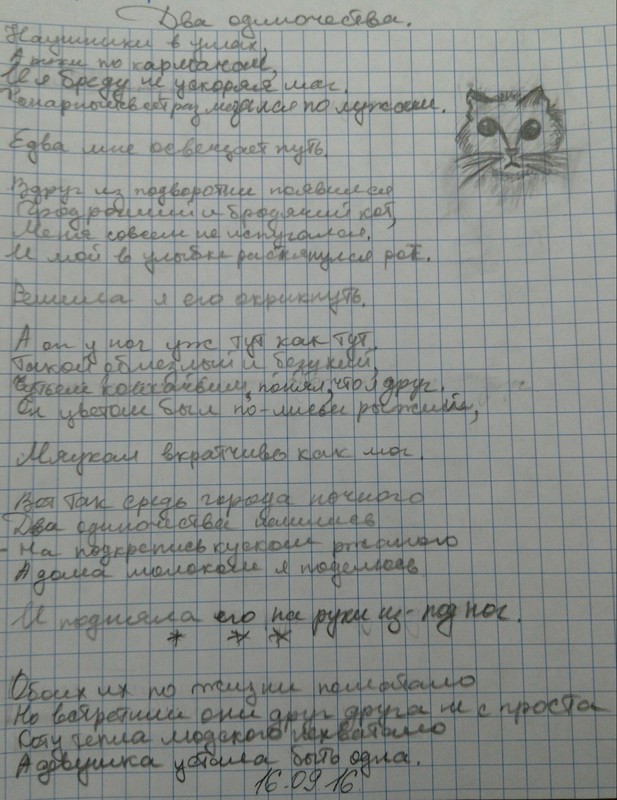 Два одиночества.
Наушники в ушах,
А руки по карманам,
И я бреду не ускоряя шаг.
Фонарный свет размазался по лужам.
Едва мне освещает путь.
Вдруг из подворотни появился
Городской и бродячий кот,
Меня совсем не испугался,
И мой в улыбке растянулся рот.
Решила я его окрикнуть.
А он у ног уж тут как тут,
Такой облезлый и безухий,
Чутьем кошачьим, понял, что я друг.
Он цветом был по-лисьи рыжий,
Мяукал вкратчиво как мог.
Вот так средь города ночного
Два одиночества нашлись
- На подкрепись куском ржаного
А дома молоком я поделюсь
И подняла его на руки из-под ног.
* * *
Обоих их по жизни помотало
Но встретили они друг друга не с проста
Коту тепла людского не хватало
А двушка устала быть одна.
16.09.16